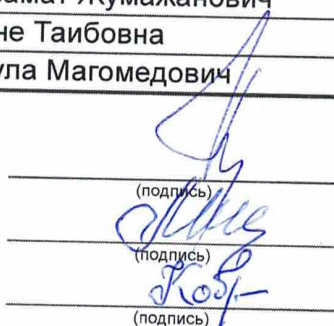 Жумажанович
не Таибовна
ула Магомедович
(подпись)
(подпись)
(подпись)